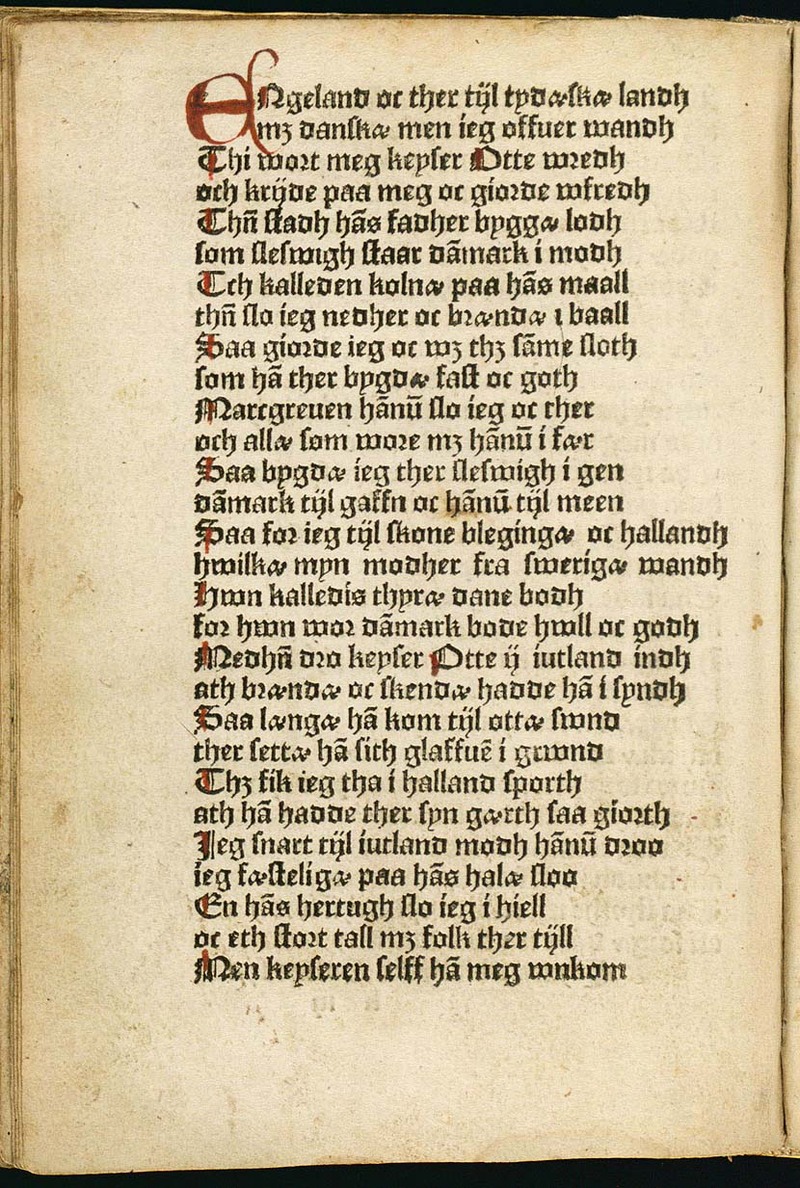 ENgeland oc ther tijl tydæskæ landh
mz danskæ men ieg offuer wandh
Thi wort meg keyser Otte wredh
och krijde paa meg oc giorde wfredh
Thn̄ stadh hās fadher byggæ lodh
som sleswigh staar dāmark i modh
Tch kalleden kolnæ paa hās maall
thn̄ slo ieg nedher oc brændæ i baall
Saa giorde ieg oc wz thz sāme sloth
som hā ther bygdæ fast oc goth
Marcgreuen hānū slo ieg oc ther
och allæ som wore mz hānū i fær
Saa bygdæ ieg ther sleswigh i gen
dāmark tijl gaffn oc hānū tijl meen
Saa for ieg tijl skone blegingæ oc hallandh
hwilkæ myn modher fra swerigæ wandh
Hwn kalledis thyræ dane bodh
for hwn wor dāmark bode hwll oc godh
Medhn̄ dro keyser Otte ij iutland indh
ath brændæ oc skendæ hadde hā i syndh
Saa længæ hā kom tijl ottæ swnd
ther settæ hā sith glaffuē i grwnd
Thz fik ieg tha i halland sporth
ath hā hadde ther syn gærth saa giorth
Jeg snart tijl iutland modh hānū droo
ieg fæsteligæ paa hās halæ sloo
En hās hertugh slo ieg i hiell
oc eth stort tall mz folk ther tijll
Men keyseren selff hā meg wnkom